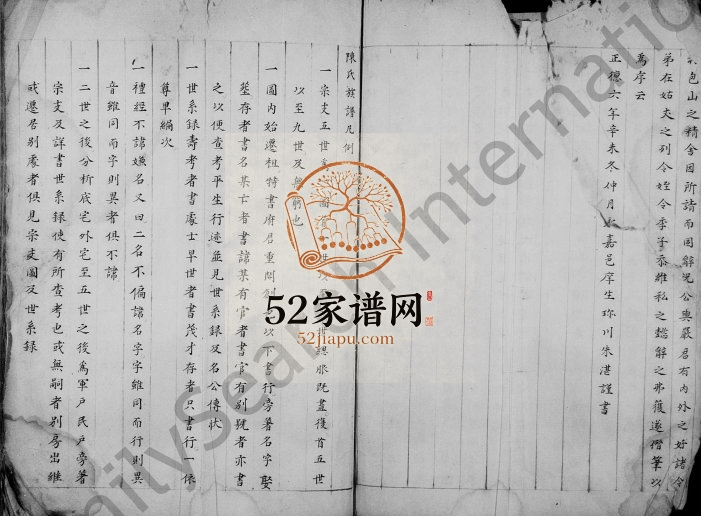 色山之精舍因所請而固辭況公與嚴君有内外之好諸令
弟在姑夫之列令姪令季子忝維私之懿辭之弗獲遂摺筆以
為序云
正德六年辛未冬仲月永嘉邑庠生珎川朱湛謹書
陳氏族譜凡例
一宗支五世 服既盡復首五世
以至九世及無窮也
一圖内始遷祖特書府君重開 以下書行旁著名字娶
塟存者書名某亡者書諱某有官者書官有別號者亦書
之以便查考平生行迹並見世系録及名公傳狀
一世系録壽考者書處士早世者書茂才存者只書行一依
尊卑編次
一禮經不諱嫌名又曰二名不偏諱名字字雖同而行則異
音雖同而字則異者俱不諱
一二世之後分析底宅外宅至五世之後為軍戶民戶旁著
宗支及詳書世系録使有所查考也或無嗣者別房出繼
或遷居別處者俱見宗支圖及世系録
52家谱网
52jiapu.com
FamilySearch International